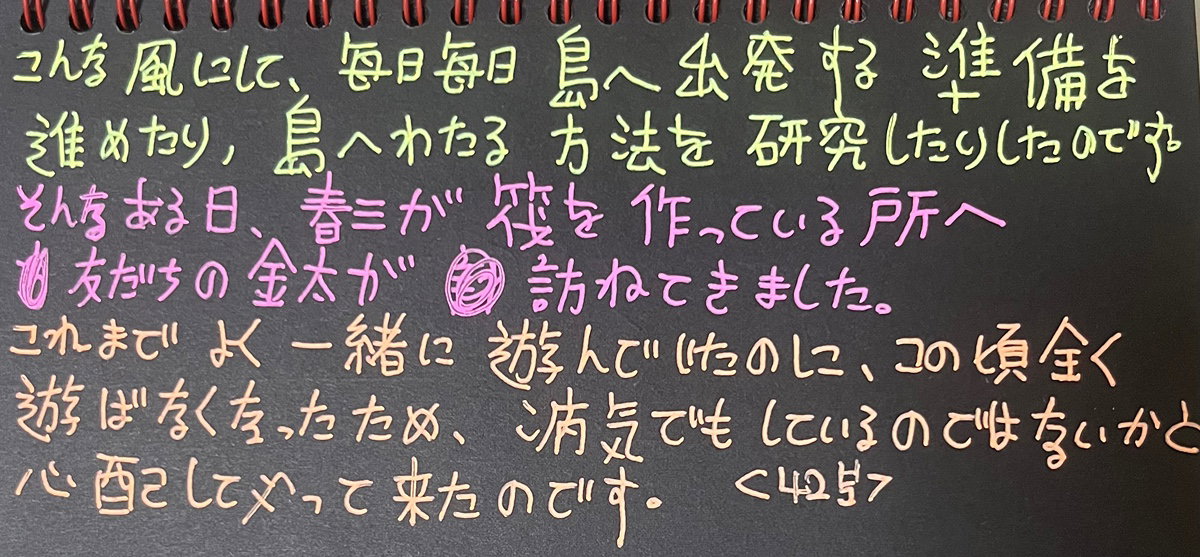 こんな風にして、毎日毎日 島へ出発する 準備を
進めたり, 島へわたる 方法を 研究したりしたのです。
そんなある日、春三が 筏を 作っている所へ
友だちの金太が 訪ねてきました。
これまで よく 一緒に 遊んでいたのに、この頃全く
遊ばなくなったため、病気でもしているのではないかと
心配してやって来たのです。 <42号>